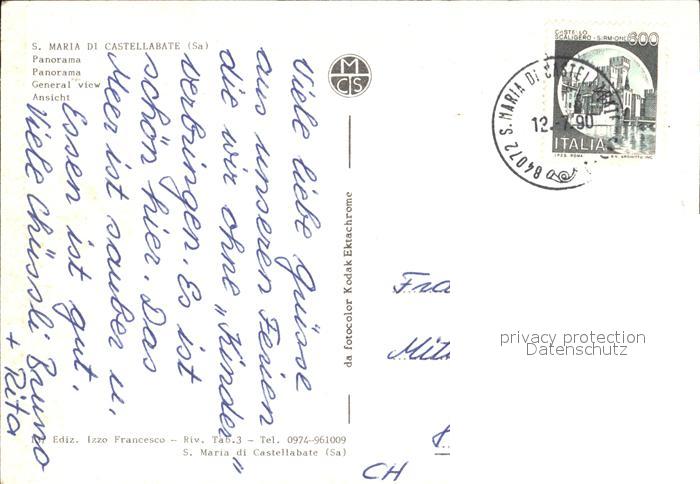 S. MARIA DI CASTELLABATE (Sa)
Panorama
Panorama
General view
Ansicht
Viele liebe Grüsse
aus unseren Ferien
die wir ohne „Kinder"
verbringen. Es ist
schön hier. Das
Meer ist sauber u.
Essen ist gut.
Viele Chüssli Bruno
+ Rita
MCS
da fotocolor Kodak Ektachrome
CASTELLO
SCALIGERO - SIRMIONE
600
ITALIA
I.P.Z.S. ROMA
84072 S. MARIA DI CASTELLABATE
12.-7.90
Fra
Mit
CH
privacy protection
Datenschutz
Ediz. Izzo Francesco - Riv. Tab.3 - Tel. 0974-961009
S. Maria di Castellabate (Sa)